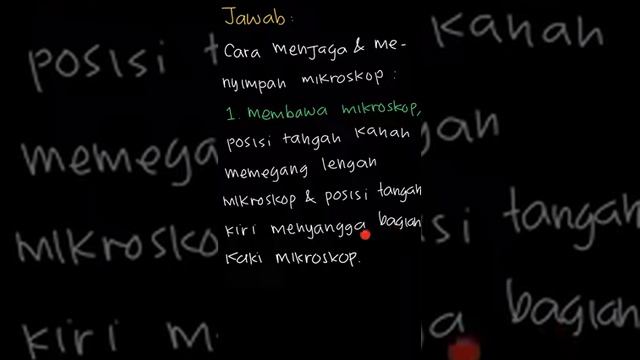 Jawab:
Cara menjaga & me-
nyimpan mikroskop:
1. membawa mikroskop,
posisi tangan kanan
memegang lengan
mikroskop & posisi tangan
kiri menyangga bagian
kaki mikroskop.